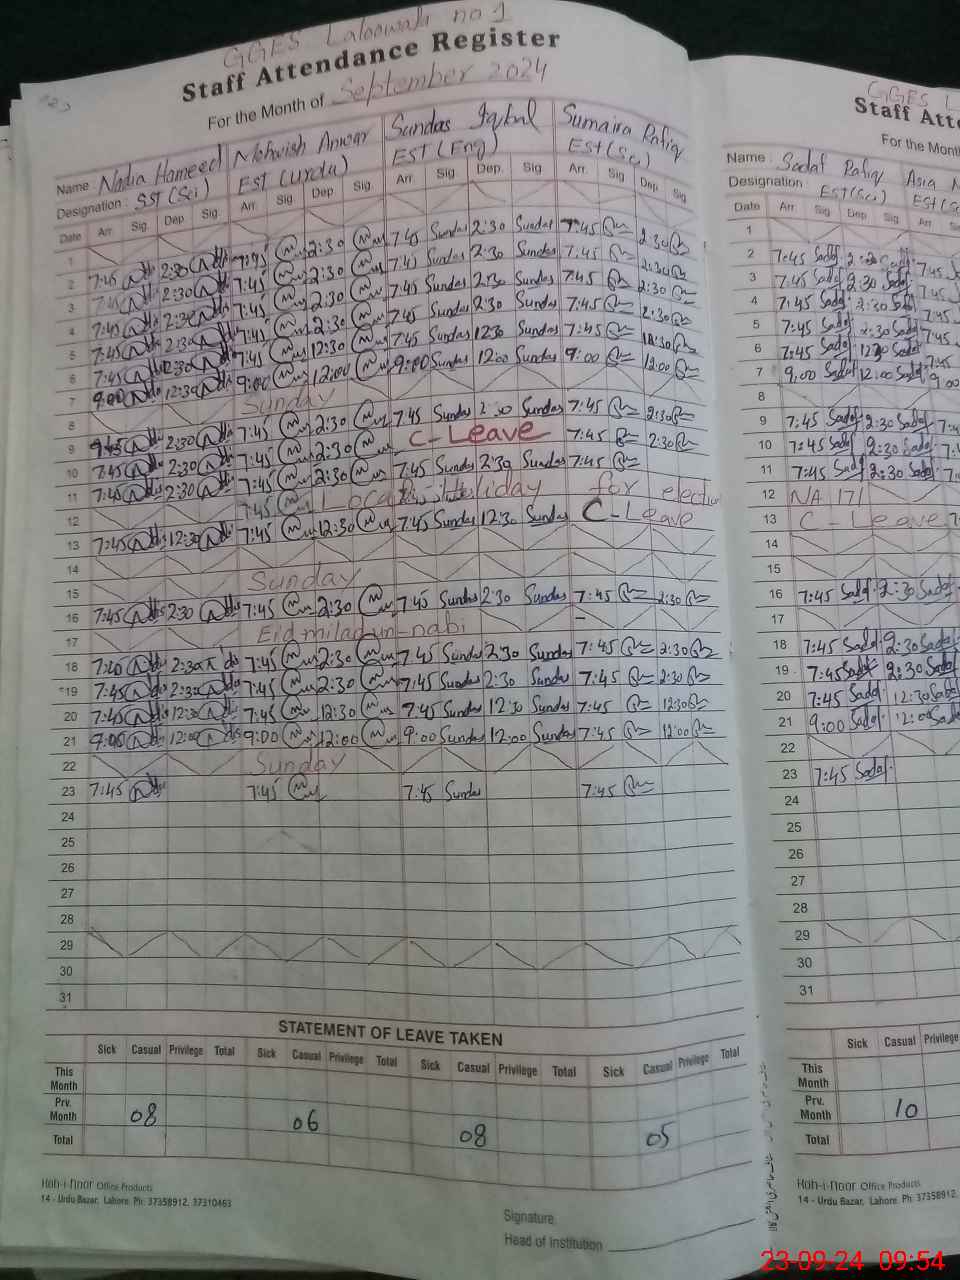 GGES Laloowali no 1
Staff Attendance Register
For the Month of September 2024
Name : Nadia Hameed Mehwish Anwar Sundas Iqbal Sumaira Rafiq
Designation : SST (Sci) EST (Urdu) EST (Eng) EST (Sci)
Date Arr. Sig. Dep. Sig. Arr. Sig. Dep. Sig. Arr. Sig. Dep. Sig. Arr. Sig. Dep. Sig.
1
2 7:45 2:30 7:45 2:30 7:45 Sundas 2:30 Sundas 7:45 2:30
3 7:45 2:30 7:45 2:30 7:45 Sundas 2:30 Sundas 7:45 2:30
4 7:45 2:30 7:45 2:30 7:45 Sundas 2:30 Sundas 7:45 2:30
5 7:45 2:30 7:45 2:30 7:45 Sundas 2:30 Sundas 7:45 2:30
6 7:45 12:30 7:45 12:30 7:45 Sundas 12:30 Sundas 7:45 12:30
7 9:00 12:30 9:00 12:00 9:00 Sundas 12:00 Sundas 9:00 12:00
8 Sunday
9 2:30 7:45 2:30 7:45 Sundas 2:30 Sundas 7:45 2:30
10 7:45 2:30 7:45 2:30 C-Leave 7:45 2:30
11 7:45 2:30 7:45 2:30 7:45 Sundas 2:30 Sundas 7:45
12 7:45 Local Holiday for election
13 7:45 12:30 7:45 12:30 7:45 Sundas 12:30 Sundas C-Leave
14
15 Sunday
16 7:45 2:30 7:45 2:30 7:45 Sundas 2:30 Sundas 7:45 2:30
17 Eid milad-un-nabi
18 7:40 2:30 7:45 2:30 7:45 Sundas 2:30 Sundas 7:45 2:30
19 7:45 2:30 7:45 2:30 7:45 Sundas 2:30 Sundas 7:45 2:30
20 7:45 12:30 7:45 12:30 7:45 Sundas 12:30 Sundas 7:45 12:30
21 9:00 12:00 9:00 12:00 9:00 Sundas 12:00 Sundas 7:45 12:00
22 Sunday
23 7:45 7:45 7:45 Sundas 7:45
24
25
26
27
28
29
30
31
STATEMENT OF LEAVE TAKEN
Sick Casual Privilege Total Sick Casual Privilege Total Sick Casual Privilege Total Sick Casual Privilege Total
This Month
Prv. Month 08 06 08 05
Total
Koh-i-Noor Office Products
14 - Urdu Bazar, Lahore. Ph: 37358912, 37310463
Signature
Head of Institution
GGES L
Staff Atte
For the Month
Name : Sadaf Rafiq Asia
Designation : EST (Sci) EST (
Date Arr. Sig. Dep. Sig. Arr.
1
2 7:45 Sadaf 2:30 Sadaf 7:45
3 7:45 Sadaf 2:30 Sadaf 7:45
4 7:45 Sadaf 2:30 Sadaf 7:45
5 7:45 Sadaf 2:30 Sadaf 7:45
6 7:45 Sadaf 12:30 Sadaf 7:45
7 9:00 Sadaf 12:00 Sadaf 9:00
8
9 7:45 Sadaf 2:30 Sadaf
10 7:45 Sadaf 2:30 Sadaf
11 7:45 Sadaf 2:30 Sadaf
12 NA 171
13 C-Leave
14
15
16 7:45 Sadaf 2:30 Sadaf
17
18 7:45 Sadaf 2:30 Sadaf
19 7:45 Sadaf 2:30 Sadaf
20 7:45 Sadaf 12:30 Sadaf
21 9:00 Sadaf 12:00 Sadaf
22
23 7:45 Sadaf
24
25
26
27
28
29
30
31
Sick Casual Privilege
This Month
Prv. Month 10
Total
Koh-i-Noor Office Products
14 - Urdu Bazar, Lahore. Ph: 37358912,
23-09-24 09:54